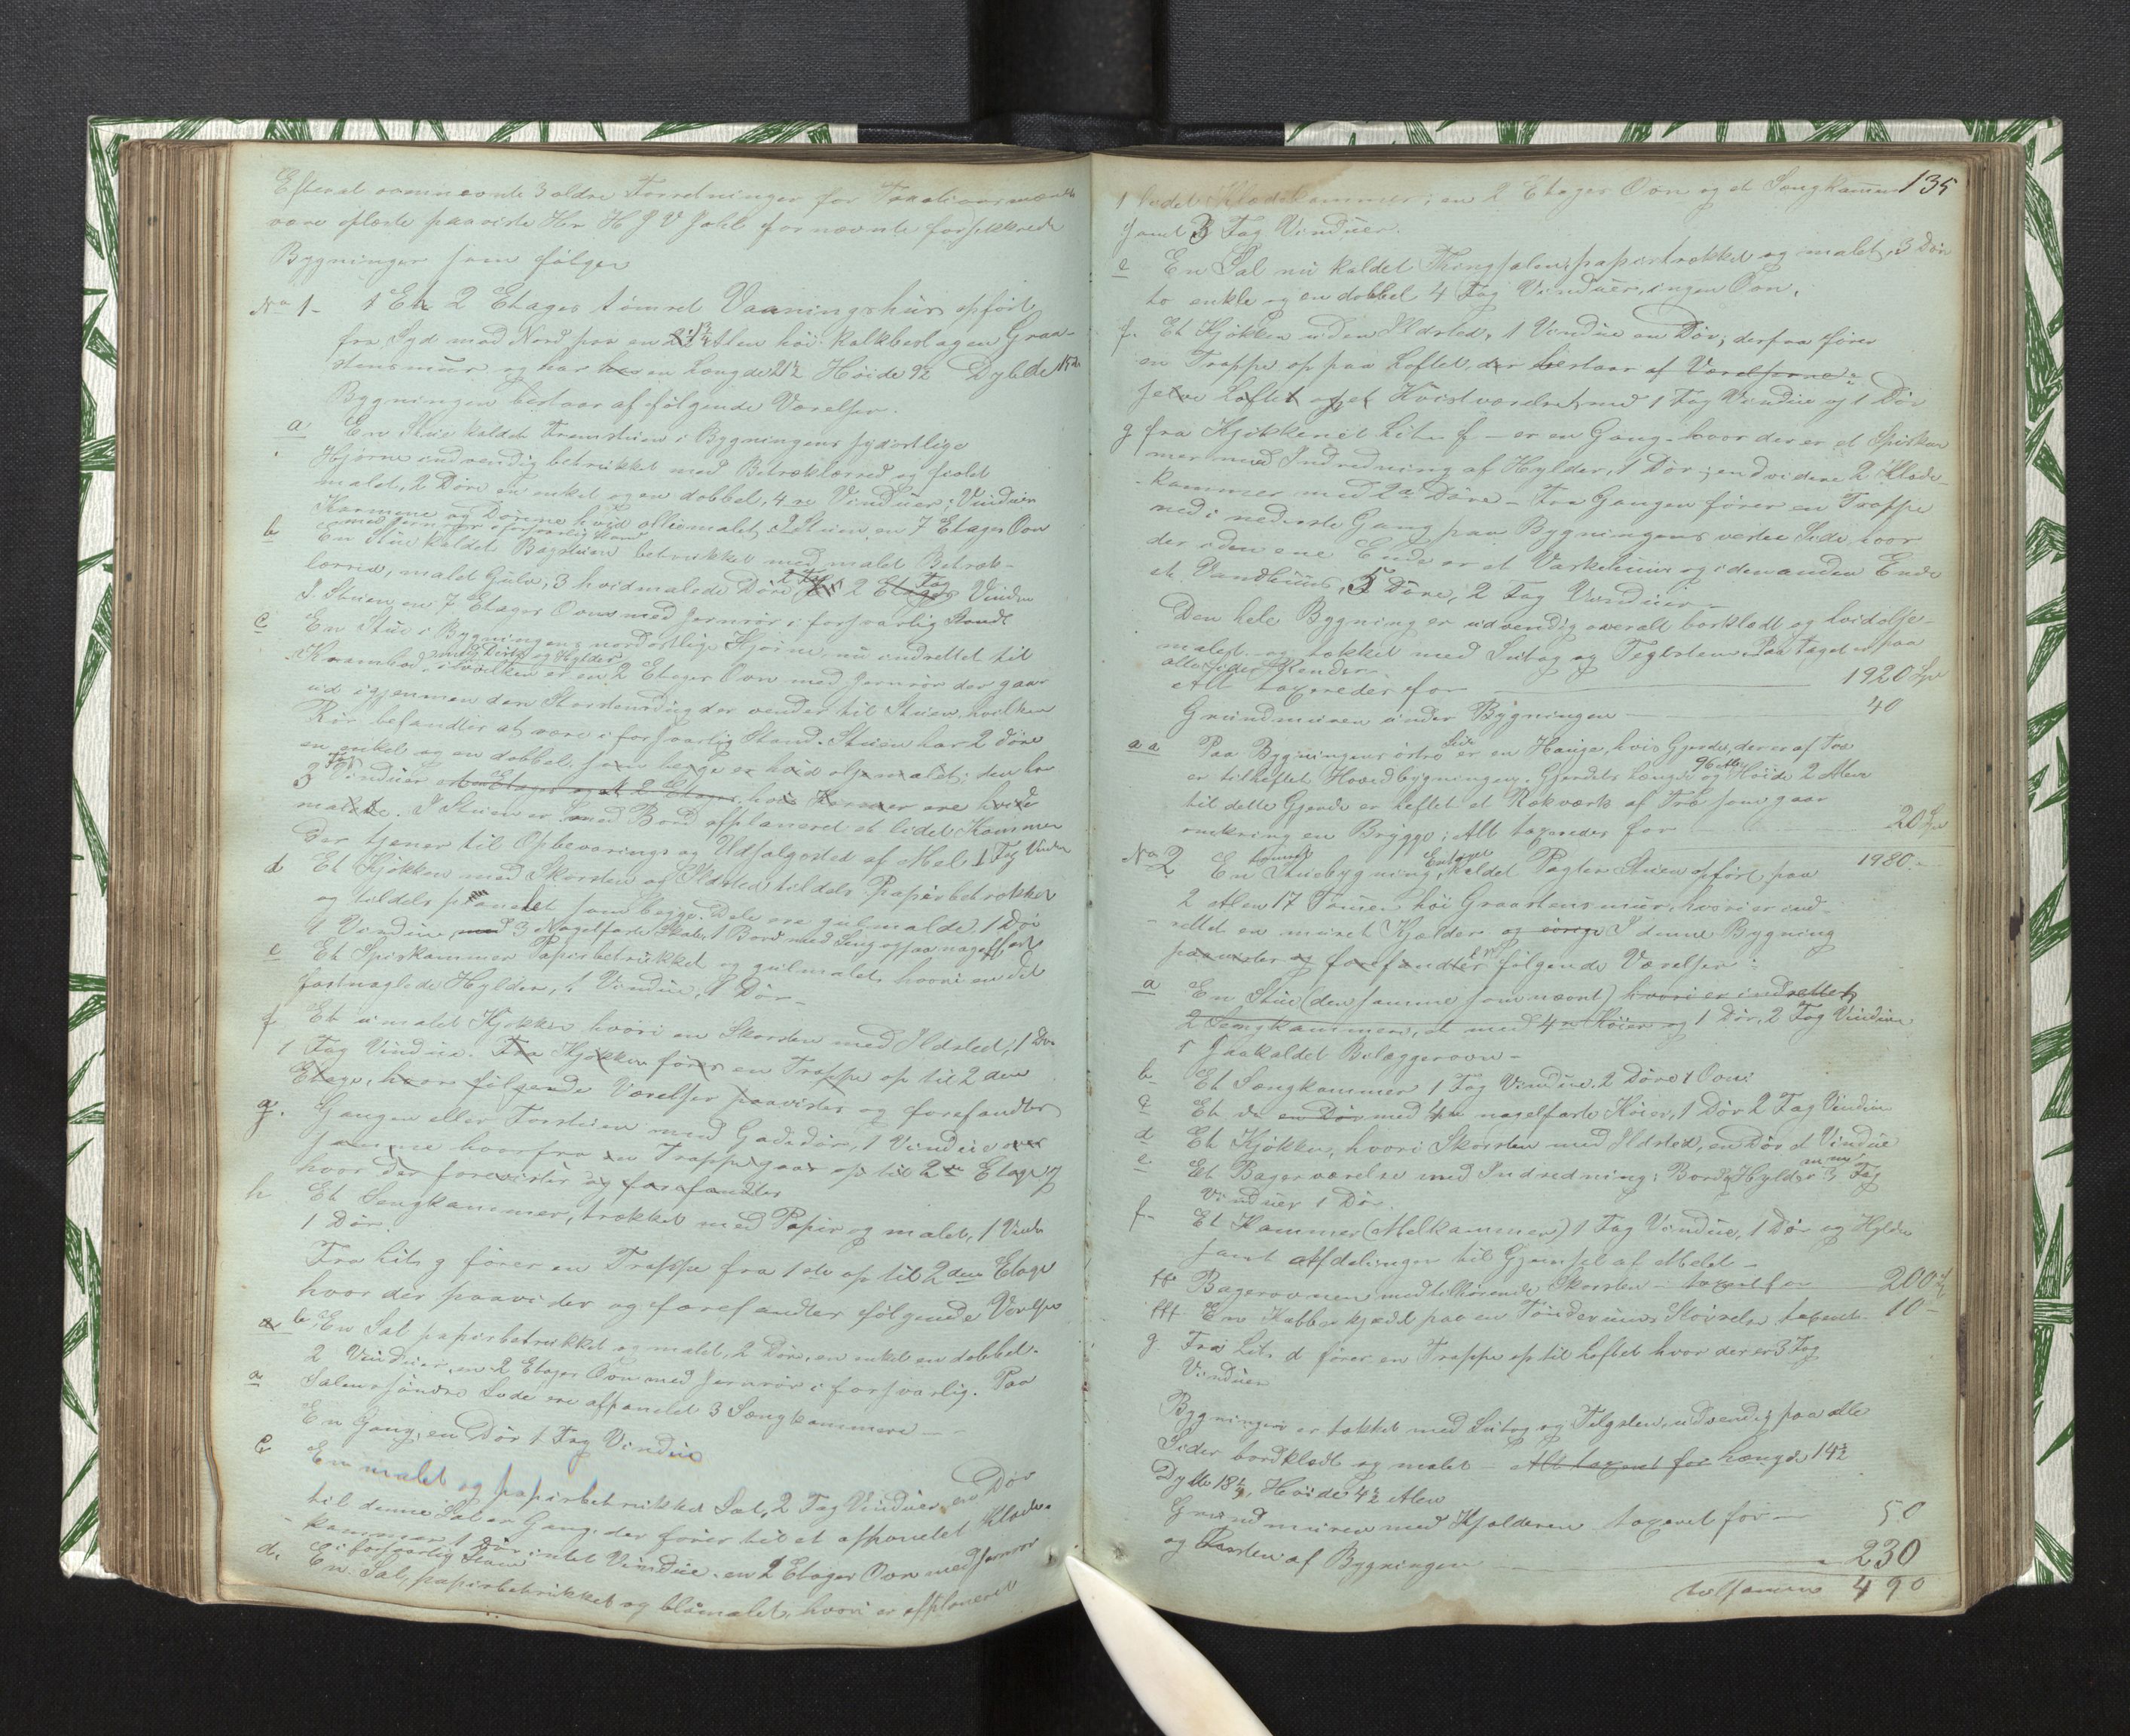 Efterat ovennævnte 3 ældre Forretninger for Taxationsmændene
vare oplæste paaviste Hr H J V Johl fornævnte forsikkrede
Bygninger som følger
No 1- 1 Et 2 Etages tømret Vaaningshuus opført
fra Syd mod Nord paa en 2 1½ Alen høi kalkbeslagen Graa-
steensmuur og har en Længde 21½ Høide 9½ Dybde 15
Bygningen bestaar af følgende Værelser.
a En Stue kaldet Fremstuen i Bygningens sydostlige
Hjørne indvendig betrukket med Betræklærred og
malet, 2 Døre en enkel og en dobbel, 4re Vinduer; Vindues
Karmene og Dørene hvid olliemalet I Stuen en 7 Etages Ovn
med Jernrør i forsvarlig Stand
b En Stue kaldet Bagstuen betrukket med malet Betræk-
lærred, malet Gulv, 3 hvidmalede Døre 2 Etages Fag Vinduer
I Stuen en 7 Etages Ovn med Jernrør i forsvarlig Stand
c En Stue i Bygningens nordostlige Hjørne, nu indrettet til
Krambod med Disk og Hylder i hvilken er en 2 Etages Ovn med Jernrør der gaar
ud igjennem den Skorsteens der vender til Stuen, hvilken
Rør befandtes at være i forsvarlig Stand. Stuen har 2 Døre
en enkel og en dobbel, som begge er hvid oljemalet; den har
3 Fag Vinduer et 2 Etages, hvis Karmer ere hvide
malede. I Stuen er med Bord afplaneret et lidet Kammer
der tjener til Opbevarings og Udsalgssted af Mel 1 Fag Vindue
d Et Kjøkken med Skorsten og Ildsted, tildels Papirbetrukket
og tildels panelet som begge Dele ere gulmalede, 1 Dør
1 Vindue med 3 Nagelfaste Skabe, 1 Bord med
e Et Spiskammer Papirbetrukket og gulmalet, hvori en Del
fastnaglede Hylder, 1 Vindue, 1 Dør-
f Et umalet Kjøkken hvori en Skorsten med Ildsted, 1 Dør
1 Fag Vindue. Fra Kjøkken fører en Trappe op til 2den
Etage, hvor følgende Værelser paavistes og forefandtes
g. Gangen eller Forstuen med Gadedør, 1 Vindue over
samme hvorfra en Trappe gaar op til 2den Etage
hvor der forevistes og forefandtes
h Et Sengkammer, trukket med Papir og malet, 1 Vindue
1 Dør.
Fra Lit. g fører en Trappe fra 1ste op til 2den Etage
hvor der paavistes og forefandtes følgende Værelser
b En Sal papirbetrukket og malet, 2 Døre, en enkel en dobbel.
2 Vinduer, en 2 Etages Ovn med Jernrør i forsvarlig. Paa
Salens søndre Side ere afpanelet 3 Sengkammere -
a En Gang, en Dør 1 Fag Vindue
c En malet og papirbetrukket Sal, 2 Fag Vinduer, en Dør
til denne Sal er Gang, der fører til et afpanelet Klæde-
kammer, 1 Dør intet Vindue. en 2 Etages Ovn med Jernrør
i forsvarlig Stand
d. En Sal, papirbetrukket og blåmalet, hvori er afplaneret
135
1 lidet Klædekammer, en 2 Etages Ovn og et Sengkammer
samt 3 Fag Vinduer.
e En Sal nu kaldet Thingsalen, papirtrukket og malet, 3 Døre
to enkle og en dobbel 4 Fag Vinduer, ingen Ovn.
f. Et Kjøkken uden Ildsted, 1 Vindue en Dør; derfra fører
en Trappe op paa Loftet, der bestaar af Værelserne
selve Loftet og et Kvistværelse med 1 Fag Vindue og 1 Dør
g fra Kjøkkenet Litr f - er en Gang - hvor der er et Spiskam
mer med Indredning af Hylder, 1 Dør; endvidere 2 Klæde-
kammer med 2 Døre - Fra Gangen fører en Trappe
ned i nederste Gang paa Bygningens vestre Side, hvor
der i den ene Ende er et Vaskehuus og i den anden Ende
et Vandhuus, 5 Døre, 2 Fag Vinduer -
Den hele Bygning er udvendig overalt bordklædt og hvidolje-
malet og tækket med Sutag og Teglsten. Paa Taget er paa
alle Sider Render
Alt taxeredes for 1920 Spd
Grundmuren under Bygningen 40
aa Paa Bygningens østre Side er en Hauge, hvis Gjerde, der er af Træ
er tilheftet Hovedbygningen. Gjerdets Længde 96 Al og Høide 2 Alen
til dette Gjerde er heftet et Rækværk af Træ som gaar
omkring en Brygge; Alt taxeredes for 20 Spd
1980.
No 2 En tømret Stuebygning, Enetages kaldet Pagter Stuen opført paa
2 Alen 17 Tommer høi Graasteensmuur, hvori er ind-
rettet en muret Kjælder. og øvrige I denne Bygning
paavistes og forefandtes er følgende Værelser:
a En Stue (den samme som nævnt) hvori er indrettet
2 Sengkammer, et med 4re Køier og 1 Dør, 2 Fag Vinduer
1 saakaldet Bilæggerovn -
b Et Sængkammer 1 Fag Vindue, 2 Døre 1 Ovn.
c Et do en Dør med 4re nagelfaste Køier, 1 Dør 2 Fag Vinduer
d Et Kjøkken, hvori Skorsten med Ildsted, en Dør et Vindue
e Et Bagerværelse med Indredning: Bord & Hylder m. m. 3 Fag
Vinduer 1 Dør.
f- Et Kammer (Melkammer) 1 Fag Vindue, 1 Dør og Hylder
samt Afdelinger til Gjemsel af Meel -
ff Bagerovnen med tilhørende Skorsten taxeret for 200
fff En Kobberkjedel paa en Tønderums Størrelse taxeret 10 -
g. Fra Lit. d fører en Trappe op til Loftet hvor der er 3 Fag
Vinduer
Bygningen er tækket med Sutag og Telgsten, udvendig paa alle
Sider bordklædt og malet - Alt taxeret for Længde 14½
Dybde 18½, Høide 4½ Alen
Grundmuren med Kjælderen taxeret for - 50
og Resten af Bygningen - 230
tilsammen 490